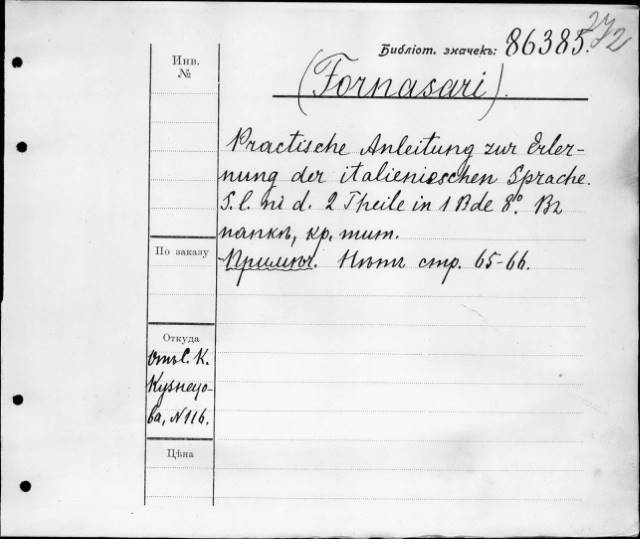 272
Библіот. значекъ: 86385.
Инв.
№
(Fornasari).
Practische Anleitung zur Erler-
nung der italienieschen Sprache.
S. l. ni d. 2 Theile in 1 Bde 8º. Въ
папкѣ, кр. тит.
Примѣч. Нѣтъ стр. 65-66.
По заказу
Откуда
Отъ С. К.
Кузнецо-
ва, N 116.
Цѣна